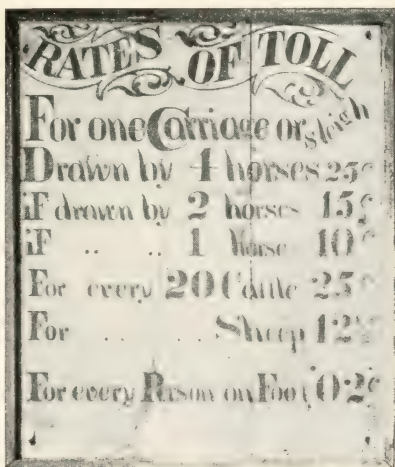 RATES OF TOLL
For one Carriage or sleigh
Drawn by 4 horses 25c
iF drawn by 2 horses 15c
iF .. .. 1 Horse 10c
For every 20 Cattle 25c
For .. .. Sheep 12½
For every Person on Foot 02c